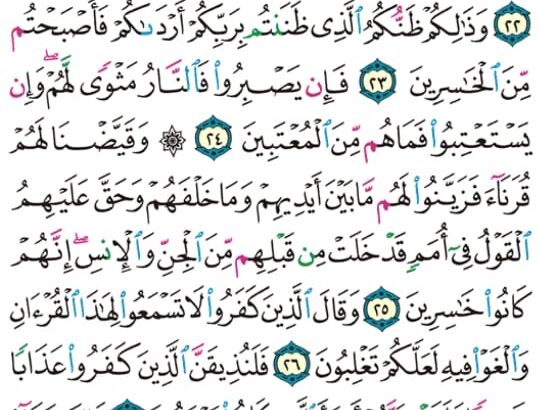 ٢٢ وَذَٰلِكُمْ ظَنُّكُمُ ٱلَّذِى ظَنَنتُم بِرَبِّكُمْ أَرْدَىٰكُمْ فَأَصْبَحْتُم
مِّنَ ٱلْخَـٰسِرِينَ ٢٣ فَإِن يَصْبِرُوا۟ فَٱلنَّارُ مَثْوًى لَّهُمْ ۖ وَإِن
يَسْتَعْتِبُوا۟ فَمَا هُم مِّنَ ٱلْمُعْتَبِينَ ٢٤ ۞ وَقَيَّضْنَا لَهُمْ
قُرَنَآءَ فَزَيَّنُوا۟ لَهُم مَّا بَيْنَ أَيْدِيهِمْ وَمَا خَلْفَهُمْ وَحَقَّ عَلَيْهِمُ
ٱلْقَوْلُ فِىٓ أُمَمٍ قَدْ خَلَتْ مِن قَبْلِهِم مِّنَ ٱلْجِنِّ وَٱلْإِنسِ ۖ إِنَّهُمْ
كَانُوا۟ خَـٰسِرِينَ ٢٥ وَقَالَ ٱلَّذِينَ كَفَرُوا۟ لَا تَسْمَعُوا۟ لِهَـٰذَا ٱلْقُرْءَانِ
وَٱلْغَوْا۟ فِيهِ لَعَلَّكُمْ تَغْلِبُونَ ٢٦ فَلَنُذِيقَنَّ ٱلَّذِينَ كَفَرُوا۟ عَذَابًا